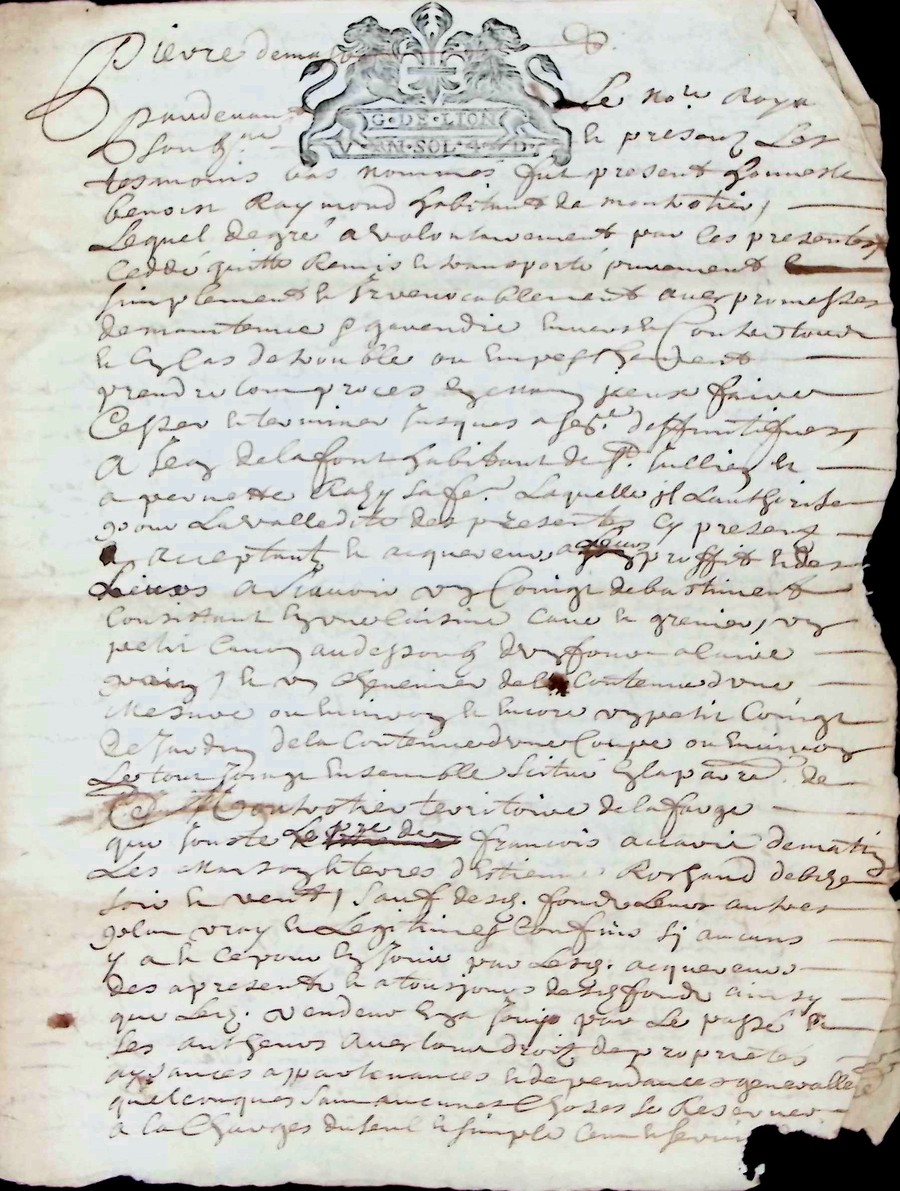 Pierre
G·DE·LION
V·N·SOL·4·D
Pardevant Le no.re Roya
soub.né le presentz Les
tesmoins bas nommés fut present honneste
benoist Raymond habitant de montrotier,
Lequel de gré a volontairement par ces presentes
Ceddé quitte Remis et transporté purement et
simplement et Irrevocablement avec promesses
de maintenir garendir envers et Contre tous
en Cas de trouble ou empeschement
prendre Comproces faire
Cesser et terminer Jusques a deffinitifves,
A Jean de la font habitant de St. Jullien et
a pernette sa fe. Laquelle il Lauthorise
pour La validité des presentes Cy present
acceptant et acquereurs a proffit et des
Leurs a scavoir un Coing de bastiment
Consistant en une Cuisine Cave et grenier, un
petit Cuvon au dessoub d'un four a Cuire
pain, et un Chenevier de la Contenue d'une
Mesure ou environ et encore un petit Coing
de Jardin de la Contenue d'une Coupe ou environ
Le tout Joingt Ensemble Situé en la parr. de
Montrotier territoire de la farge
que Jouste francois de matin
Les terres d'Estienne de bize
soir et vent, Sauf desd. fonds Leurs autres
plus vray et Legitimes Confins sy aucuns
y a et Ce pour en Jouir par Lesd. acquereurs
des a present et a tousjours desd fonds ainsy
que Led. vendeur en a Jouy par Le passé et
Ses autheurs avec tous droitz de proprietés
aysances appartenances et dependances generalles
quelconques sans aucunes Choses se Reserver
a La Charges du seul et simple Cens et servis